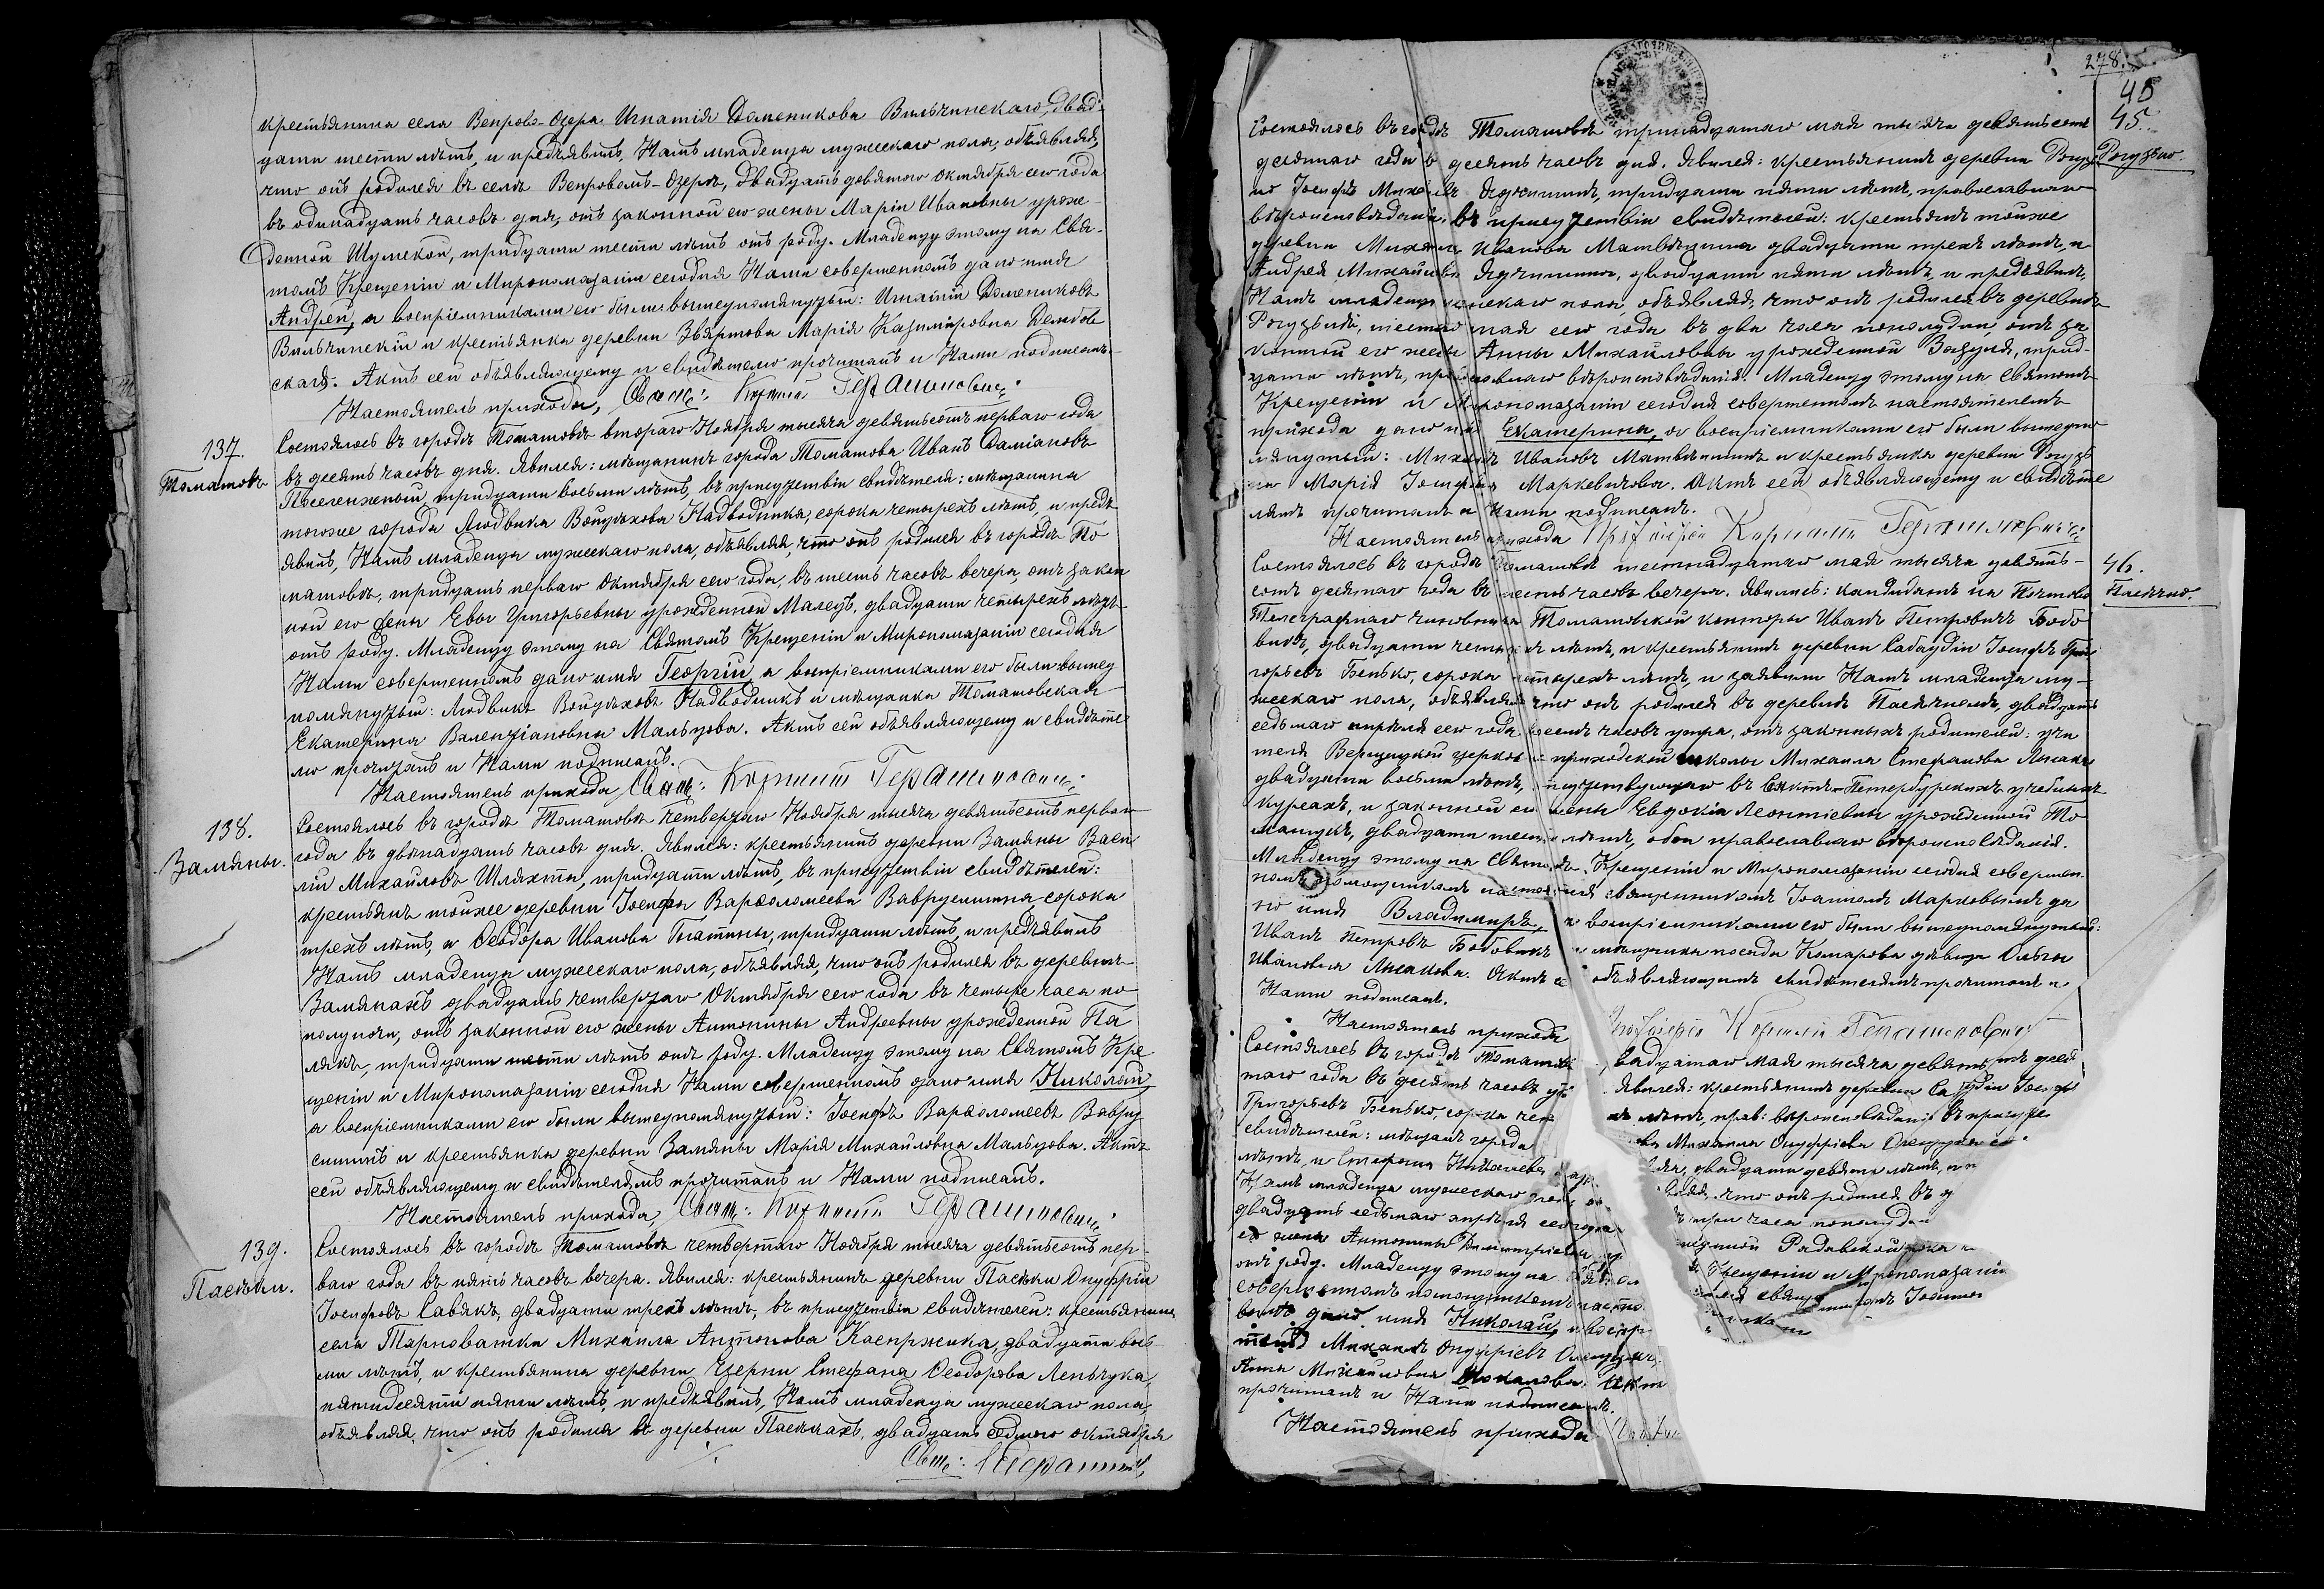 крестьянина села Вепрово-Озера Игнатія Доменикова Вильчинскаго, двад-
цати шести лѣтъ, и предъявилъ Намъ младенца мужескаго пола, объявляя,
что онъ родился въ селѣ Вепровомъ-Озерѣ, двадцать девятаго Октября сего года
въ одинадцать часовъ дня, отъ законной его жены Маріи Ивановны урож-
денной Шумской, тридцати шести лѣтъ отъ роду. Младенцу этому на Свя-
томъ Крещеніи и Миропомазаніи сегодня Нами совершенномъ дано имя
Андрей, а воспріемниками его были вышеупомянутый: Игнатій Домениковъ
Вильчинскій и крестьянка деревни Звяртова Марія Казиміровна Дембов-
ская. Актъ сей объявляющему и свидѣтелю прочитанъ и Нами подписанъ.
Настоятель прихода, Свящ: Корнилій Герашиновичъ
137.
Томашовъ
Состоялось въ городѣ Томашовѣ втораго Ноября тысяча девятьсотъ перваго года
въ десять часовъ дня. Явился: мѣщанинъ города Томашова Иванъ Даміановъ
тридцати восьми лѣтъ, въ присутствіи свидѣтеля: мѣщанина
тогоже города Людвика Войцѣхова Надводника, сорока четырехъ лѣтъ, и предъ
явилъ, Намъ младенца мужескаго пола, объявляя, что онъ родился въ городѣ То
машовѣ, тридцать перваго Октября сего года, въ шесть часовъ вечера, отъ закон
ной его жены Евы Григорьевны урожденной Малецъ, двадцати четырехъ лѣтъ
отъ роду. Младенцу этому на Святомъ Крещеніи и Миропомазаніи сегодня
Нами совершенномъ дано имя Георгій, а воспріемниками его были вышеу
помянутый: Людвикъ Войцѣховъ Надводникъ и мѣщанка Томашовская
Екатерина Валентіановна Мальцова. Актъ сей объявляющему и свидѣте
лю прочитанъ и Нами подписанъ.
Настоятель прихода, Свящ: Корнилій Герашиновичъ
138.
Замяны.
Состоялось въ городѣ Томашовѣ четвертаго Ноября тысяча девятьсотъ перваго
года въ двѣнадцать часовъ дня. Явился: крестьянинъ деревни Замяны Васи
лій Михайловъ Шляхта, тридцати лѣтъ, въ присутствіи свидѣтелей:
крестьянъ тойже деревни Іосифа Варѳоломеева Ваврусишина сорока
трехъ лѣтъ, и Ѳеодора Иванова тридцати лѣтъ, и предъявилъ
Намъ младенца мужескаго пола, объявляя, что онъ родился въ деревнѣ
Замянахъ двадцать четвертаго Октября сего года въ четыре часа по
полуночи, отъ законной его жены Антонины Андреевны урожденной Па
лякъ, тридцати шести лѣтъ отъ роду. Младенцу этому на Святомъ Кре
щеніи и Миропомазаніи сегодня Нами совершенномъ дано имя Николай
а воспріемниками его были вышеупомянутый: Іосифъ Варѳоломеевъ Вавру
сишинъ и крестьянка деревни Замяны Марія Михайловна Мальцова. Актъ
сей объявляющему и свидѣтелямъ прочитанъ и Нами подписанъ.
Настоятель прихода, Свящ: Корнилій Герашиновичъ
139.
Пасѣки.
Состоялось въ городѣ Томашовѣ четвертаго Ноября тысяча девятьсотъ пер-
ваго года въ пять часовъ вечера. Явился: крестьянинъ деревни Пасѣки Онуфрій
Іосифовъ Савякъ, двадцати трехъ лѣтъ, въ присутствіи свидѣтелей: крестьянина
села Тарноватки Михаила Антонова Каспржика двадцати вось-
ми лѣтъ, и крестьянина деревни Черни Стефана Ѳеодорова Леньчука,
пятидесяти пяти лѣтъ, и предъявилъ, Намъ младенца мужескаго пола,
объявляя, что онъ родился въ деревни Пасѣкахъ, двадцать седьмого октября
Свящ:
278.
45
45.
Рогузьно.
Состоялось въ городѣ Томашовѣ тринадцатаго мая тысяча девятьсотъ
десятаго года въ десять часовъ дня. Явился: крестьянинъ деревни Рогузь
но Іосифъ Михайловъ тридцати пяти лѣтъ, православнаго
вѣроисповѣданія, въ присутствіи свидѣтелей: крестьянъ тойже
деревни Михаила Иванова Матвѣишина двадцати трехъ лѣтъ, и
Андрея Михайлова двадцати пяти лѣтъ, и предъявилъ,
Намъ младенца женскаго пола, объявляя, что онъ родился въ деревнѣ
Рогузьнѣ, шестаго мая сего года въ два часа пополудни, отъ за
конной его жены Анны Михайловны урожденной Вазуля, трид-
цати лѣтъ, православнаго вѣроисповѣданія. Младенцу этому на Святомъ
Крещеніи и Миропомазаніи сегодня совершенномъ настоятелемъ
прихода дано имя Екатерина, а воспріемниками его были вышеупо
мянутый: Михаилъ Ивановъ Матвѣишинъ и крестьянка деревни Рогузь
на Марія Іосифовна Маркевичова. Актъ сей объявляющему и свидѣте
лямъ прочитанъ и Нами подписанъ.
Настоятель прихода Протоіерей Корнилій Герашиновичъ
46.
Пасѣчно.
Состоялось въ городѣ Томашовѣ шестнадцатаго мая тысяча девять-
сотъ десятаго года въ шесть часовъ вечера. Явились: кандидатъ на Почтово
Телеграфнаго чиновника Томашовской конторы Иванъ Петровичъ Бобо
викъ, двадцати четырехъ лѣтъ, и крестьянинъ деревни Сабаудіи Іосифъ Гри
горьевъ Бенько, сорока четырехъ лѣтъ, и заявили Намъ младенца му-
жескаго пола, объявляя что онъ родился въ деревнѣ Пасѣчномъ, двадцать
седьмаго апрѣля сего года часовъ утра, отъ законныхъ родителей: учи
теля Верщицкой церковно приходской школы Михаила Стефанова Лысака
двадцати восьми лѣтъ, въ Санктъ-Петербурскихъ учебныхъ
курсахъ, и законной его жены Евдокіи Леонтіевны урожденной То
мащукъ, двадцати шести лѣтъ, обои православнаго вѣроисповѣданія.
Младенцу этому на Святомъ Крещеніи и Миропомазаніи сегодня совершен
номъ помощникомъ настоятеля священникомъ Іоанномъ Марковымъ да
но имя Владимиръ, а воспріемниками его были вышеупомянутый:
Иванъ Петровъ Бобовикъ и мѣщанка посада Комарова дѣвица Ольга
Ивановна Лысакова. Актъ сей объявляющимъ свидѣтелямъ прочитанъ и
Нами подписанъ.
Настоятель прихода Протоіерей Корнилій Герашиновичъ
Состоялось въ городѣ Томашовѣ двадцатаго мая тысяча девятьсотъ деся
таго года въ десять часовъ Явился: крестьянинъ деревни Іосифъ
Григорьевъ Бенько, сорока лѣтъ, прав: вѣроисповѣданія въ присут
свидѣтелей: мѣщанъ города Михаила Онуфріева
лѣтъ, и Стефана двадцати девяти лѣтъ, и
Намъ младенца мужескаго пола, что онъ родился въ
двадцать седьмаго апрѣля сего года три часа пополудни
его жены Антонины Димитріевны Радавской
отъ роду. Младенцу этому на Крещеніи и Миропомазаніи
совершенномъ помощникомъ Іоанномъ
дано имя Николай, а воспр
Михаилъ Онуфріевъ
Анна Михайловна Актъ
прочитанъ и Нами подписанъ.
Настоятель прихода